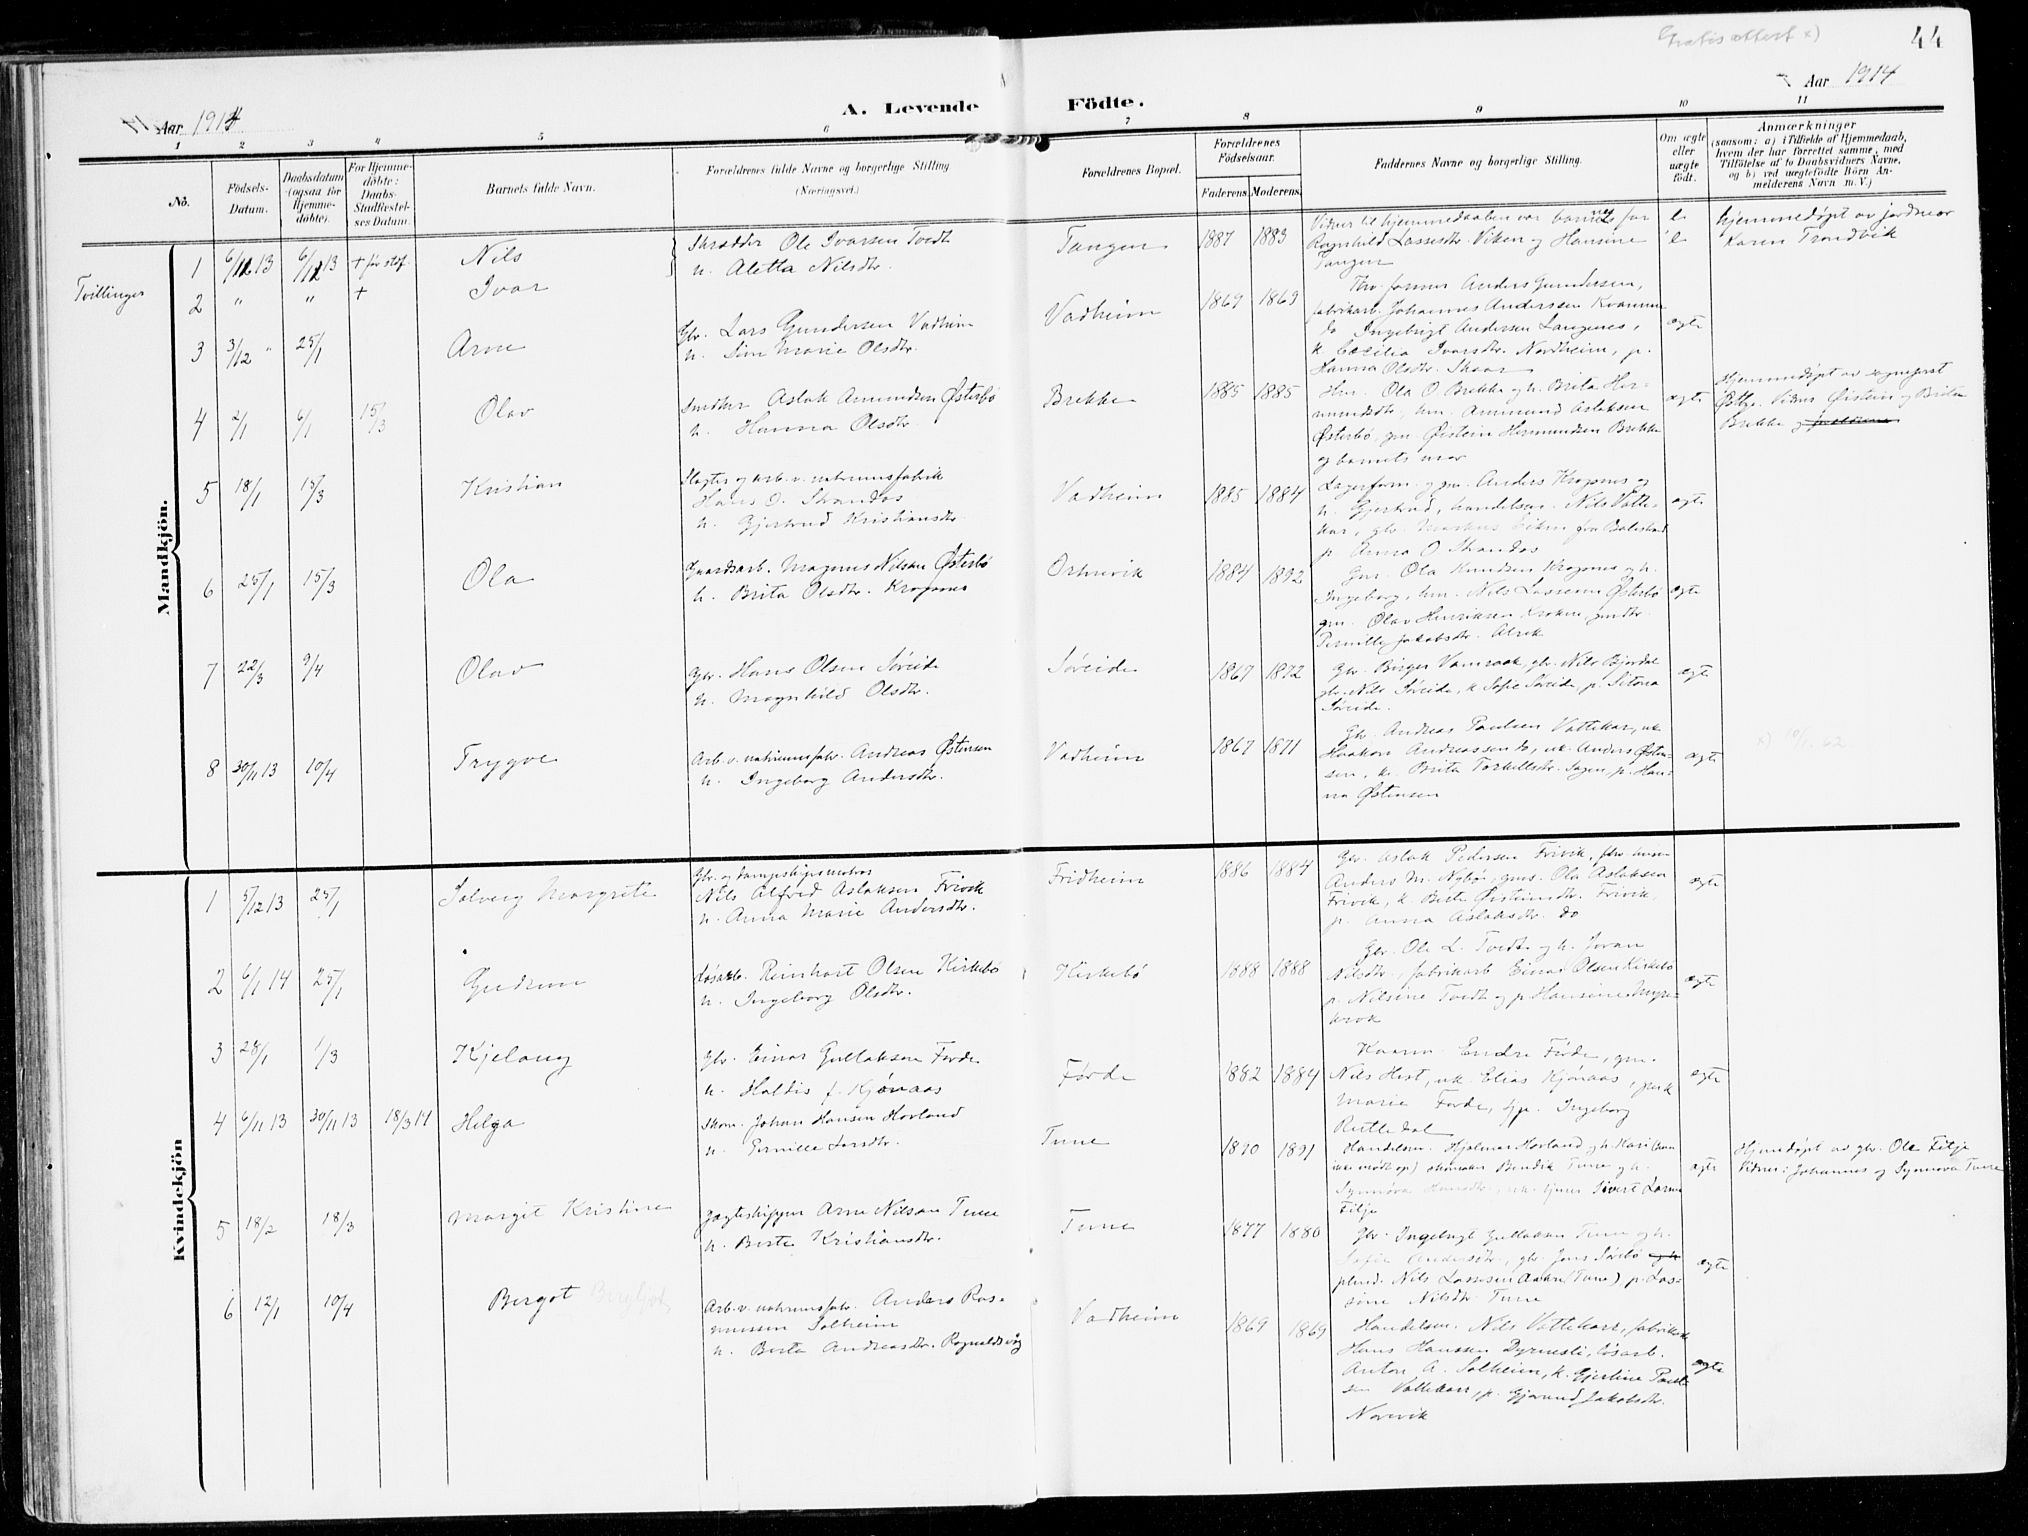 Gratisattest x)
44
Aar 1914
A. Levende Födte.
Aar 1914
1 2 3 4 5 6 7 8 9 10 11
No.
Födsels-Datum.
Daabsdatum (ogsaa for Hjemmedøbte).
For Hjemmedöbte: Daabs-Stadfæstelses Datum.
Barnets fulde Navn.
Forældrenes fulde Navne og borgerlige Stilling
(Næringsvei.)
Forældrenes Bopæl.
Forældrenes Födselsaar.
Faderens. Moderens.
Faddernes Navne og borgerlige Stilling.
Om ægte eller uægte födt.
Anmærkninger
(saasom: a) i Tilfælde af Hjemmedaab, hvem der har forrettet samme, med Tilföielse af to Daabsvidners Navne, og b) ved uægtefödte Börn Anmelderens Navn m. V.)
Mandkjön.
Tvillinger
1 6/12 13 6/12 13 + før staf. Nils
Skrædder Ole Ivarsen Tvedt
h. Aletta Nilsdtr.
Tangen 1887 1883
Vidner til hjemmedaaben var barnets far
Ragnhild Lassesdtr. Viken og Hansine
Tangen
Hjemmedøpt av jordmor
Karen Trondvik
2 " " + Ivar
3 3/12 " 25/1 Arne
Gbr. Lars Gundersen Vadheim
h. Sine Marie Olsdtr.
Vadheim 1869 1869
Thv. former Anders Gundersen,
fabrikarb. Johannes Anderssen Kvamme
do Ingebrigt Andersen Langenes,
k. Cecilia Ivarsdtr. Nordheim, p.
Hanna Olsdtr. Skaar
ægte
4 2/1 6/1 15/3 Olav
Smitker Aslak Ammundsen Østerbö
h. Hanna Olsdtr.
Brekke 1885 1885
Hm. Ola O Brekke og h. Brita Her-
mundsdtr, hm. Ammund Aslaksen
Østerbö, gm. Øistein Hermundsen Brekke
og barnets mor
ægte
Hjemmedøpt av sogneprest
Østbye. Vidner Øistein og Brita
Brekke og foreldrene
5 18/1 15/3 Kristian
Slagter og arb. v. natriumsfabrik
Hans O. Strandos
h. Gjertrud Kristiansdtr.
Vadheim 1885 1884
Lagerform. og gm. Anders Kropnes og
h. Gjertrud, handelsm. Nils Vatte-
kar, gbr. Markus Eiken fra Balestrand
p. Anna O Strandos
ægte
6 25/1 15/3 Ola
Gaardsarb. Magnus Nilsen Østerbö
h. Brita Olsdtr. Kropnes
Ortnevik 1884 1892
Gm. Ola Knudsen Kropnes og h.
Ingeborg, hm. Nils Lassesen Østerbö
gm. Olav Henriksen Kroken, gmdtr.
Pernille Jakobsdtr. Alrek
ægte
7 22/3 9/4 Olav
Gbr. Hans Olsen Søreide
h. Magnhild Olsdtr.
Søreide 1867 1872
Gbr. Birger Vamraak, gbr. Nils Bjordal
gbr. Nils Søreide, k. Sofie Søreide, p. Sitona
Søreide.
ægte
8 30/11 13 10/4 Trygve
Arb. v. natriumsfabr. Andreas Østensen
h. Ingeborg Andersdtr.
Vadheim 1867 1871
Gbr. Andreas Paulsen Vattekar, uk.
Haakon Andreassen do, uk. Anders Østen-
sen, k. Brita Torkellsdtr. Sagen, p. Han-
na Østensen
ægte
x) 10/1. 62
Kvindekjön
1 5/12 13 25/1 Solveig Margrete
Gbr. og dampskipsmatros
Nils Alfred Aslaksen Frivik
h. Anna Marie Andersdtr.
Fridheim 1886 1884
Gbr. Aslak Pedersen Frivik,
Anders M. Nybø, gms. Ola Aslaksen
Frivik, k. Birte Øisteinsdtr. Frivik,
p. Anna Aslaksdtr. do
ægte
2 6/1 14 25/1 Gudrun
Løsarb. Reinhart Olsen Kirkebö
h. Ingeborg Olsdtr.
Kirkebö 1888 1888
Gbr. Ole L. Tvedt og h. Joran
Nilsdtr., fabrikarb Einar Olsen Kirkebö
p. Nilsine Tvedt og p. Hansine Myre-
krok
ægte
3 28/1 1/3 Kjellaug
Gbr. Einar Gullaksen Førde
h. Haldis f. Kjønaas
Førde 1882 1884
Kaarm. Endre Førde, gm.
Nils Hest, uk. Elias Kjønaas, pik
Marie Førde, tjp. Ingeborg
Rutledal
ægte
4 6/11 13 30/11 13 18/3 14 Helga
Skom. Johan Hansen Hovland
h. Pernille Larsdtr.
Tune 1890 1891
Handelsm. Hjelmer Hovland og h. Kari (kun
ikke mødt op) skomaker Bendik Tune og h.
Synnøva Hansdtr., uk. tjener Sivert Larsen
Fitje
ægte
Hjemdøpt av gbr. Ole Fitje
Vidner: Johannes og Synnøva Tune
5 18/2 18/3 Margit Kristine
Jagteskipper Arne Nilsen Tune
h. Birte Kristiansdtr.
Tune 1877 1880
Gbr. Ingebrigt Gullaksen Tune og h.
Sofie Andersdtr., gbr. Jens Sörebö og h
plmd. Nils Lassesen Aakre (Tune), p. Las-
sine Nilsdtr. Tune
ægte
6 12/1 10/4 Bergot Bergljot
Arb. v. natriumsfabr. Anders Ras-
mussen Solheim
h. Berta Andreasdtr. Ragnaldsvåg
Vadheim 1869 1869
Handelsm. Nils Vattekar, fabrikarb.
Hans Hanssen Dyrnesli, løsarb.
Anton A. Solheim, k. Gjertine Paul-
sen Vattekar, p. Gjørund Jakobsdtr.
Norevik
ægte